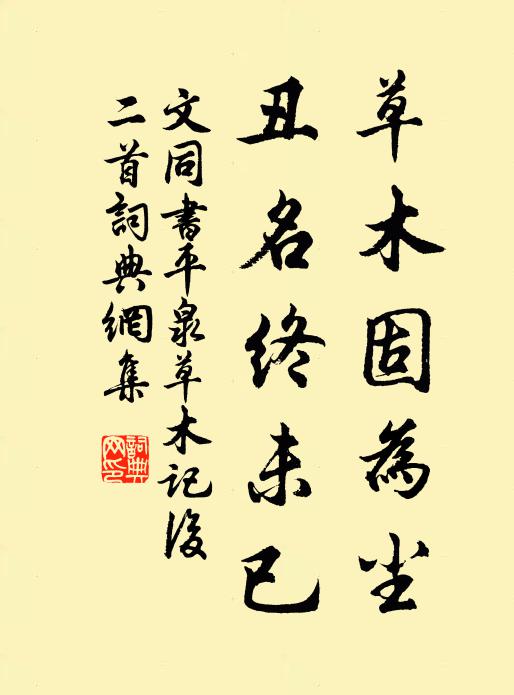 草木固為尘
丑名终未已
文同書平泉草木記後
二首詞典網集
詞典网印